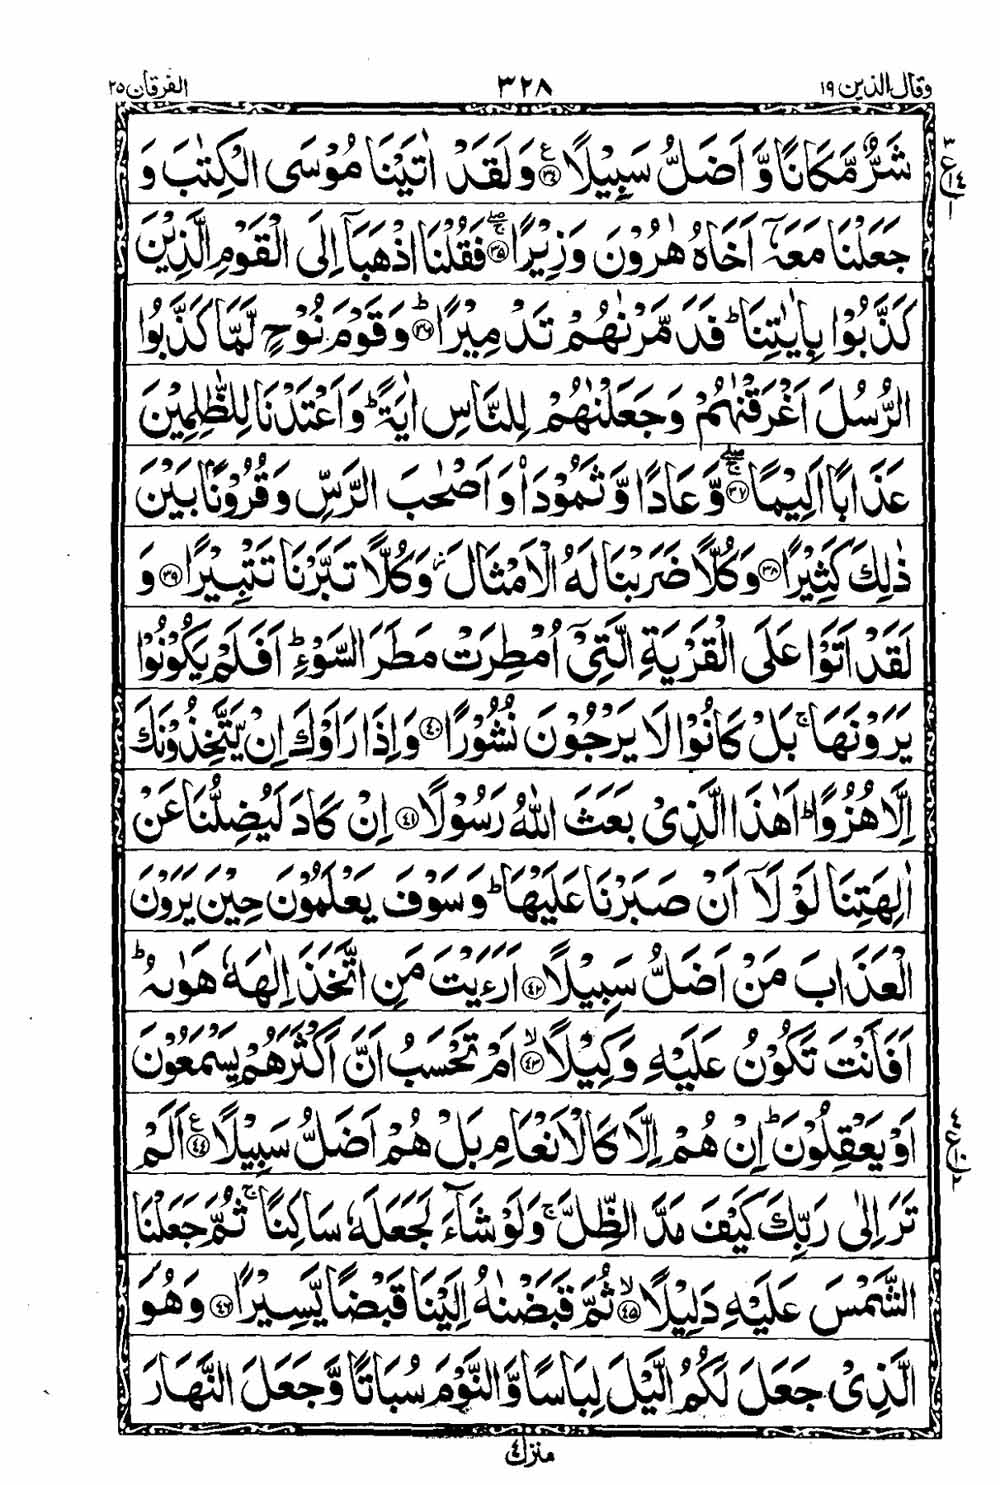 وقال الذین ۱۹
۳۲۸
الفرقان ۲۵
شَرٌّ مَّكَانًا وَّ اَضَلُّ سَبِیْلًا ﴿۳۴﴾ ع وَ لَقَدْ اٰتَیْنَا مُوْسَی الْكِتٰبَ وَ
جَعَلْنَا مَعَهٗۤ اَخَاهُ هٰرُوْنَ وَزِیْرًا ﴿۳۵﴾ ۚۖ فَقُلْنَا اذْهَبَاۤ اِلَی الْقَوْمِ الَّذِیْنَ
كَذَّبُوْا بِاٰیٰتِنَا ؕ فَدَمَّرْنٰهُمْ تَدْمِیْرًا ﴿۳۶﴾ ؕ وَ قَوْمَ نُوْحٍ لَّمَّا كَذَّبُوا
الرُّسُلَ اَغْرَقْنٰهُمْ وَ جَعَلْنٰهُمْ لِلنَّاسِ اٰیَةً ؕ وَ اَعْتَدْنَا لِلظّٰلِمِیْنَ
عَذَابًا اَلِیْمًا ﴿۳۷﴾ ۚۖ وَّ عَادًا وَّ ثَمُوْدَا۠ وَ اَصْحٰبَ الرَّسِّ وَ قُرُوْنًۢا بَیْنَ
ذٰلِكَ كَثِیْرًا ﴿۳۸﴾ وَ كُلًّا ضَرَبْنَا لَهُ الْاَمْثَالَ ؗ وَ كُلًّا تَبَّرْنَا تَتْبِیْرًا ﴿۳۹﴾ وَ
لَقَدْ اَتَوْا عَلَی الْقَرْیَةِ الَّتِیْۤ اُمْطِرَتْ مَطَرَ السَّوْءِ ؕ اَفَلَمْ یَكُوْنُوْا
یَرَوْنَهَا ۚ بَلْ كَانُوْا لَا یَرْجُوْنَ نُشُوْرًا ﴿۴۰﴾ وَ اِذَا رَاَوْكَ اِنْ یَّتَّخِذُوْنَكَ
اِلَّا هُزُوًا ؕ اَهٰذَا الَّذِیْ بَعَثَ اللّٰهُ رَسُوْلًا ﴿۴۱﴾ اِنْ كَادَ لَیُضِلُّنَا عَنْ
اٰلِهَتِنَا لَوْ لَاۤ اَنْ صَبَرْنَا عَلَیْهَا ؕ وَ سَوْفَ یَعْلَمُوْنَ حِیْنَ یَرَوْنَ
الْعَذَابَ مَنْ اَضَلُّ سَبِیْلًا ﴿۴۲﴾ اَرَءَیْتَ مَنِ اتَّخَذَ اِلٰهَهٗ هَوٰىهُ ؕ
اَفَاَنْتَ تَكُوْنُ عَلَیْهِ وَكِیْلًا ﴿۴۳﴾ ۙ اَمْ تَحْسَبُ اَنَّ اَكْثَرَهُمْ یَسْمَعُوْنَ
اَوْ یَعْقِلُوْنَ ؕ اِنْ هُمْ اِلَّا كَالْاَنْعَامِ بَلْ هُمْ اَضَلُّ سَبِیْلًا ﴿۴۴﴾ ع اَلَمْ
تَرَ اِلٰی رَبِّكَ كَیْفَ مَدَّ الظِّلَّ ۚ وَ لَوْ شَآءَ لَجَعَلَهٗ سَاكِنًا ۚ ثُمَّ جَعَلْنَا
الشَّمْسَ عَلَیْهِ دَلِیْلًا ﴿۴۵﴾ ۙ ثُمَّ قَبَضْنٰهُ اِلَیْنَا قَبْضًا یَّسِیْرًا ﴿۴۶﴾ وَ هُوَ
الَّذِیْ جَعَلَ لَكُمُ الَّیْلَ لِبَاسًا وَّ النَّوْمَ سُبَاتًا وَّ جَعَلَ النَّهَارَ
منزل ۴